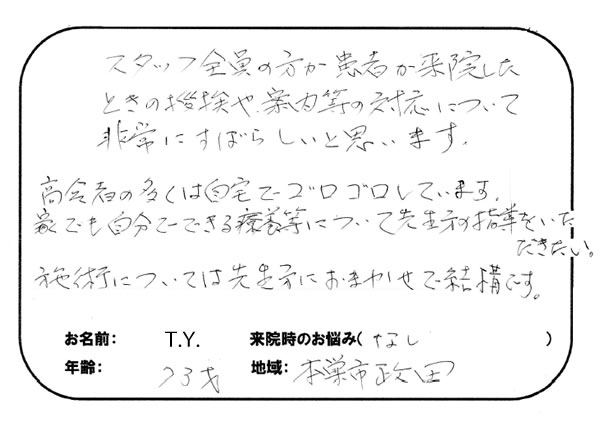 スタッフ全員の方が患者が来院した
ときの挨拶や、案内等の対応について
非常にすばらしいと思います。
高令者の多くは自宅でゴロゴロしています。
家でも自分でできる療養等について先生方の指導をいた
だきたい。
施術については先生方におまかせで結構です。
お名前: T.Y. 来院時のお悩み( なし )
年齢: 73才 地域: 本巣市政田